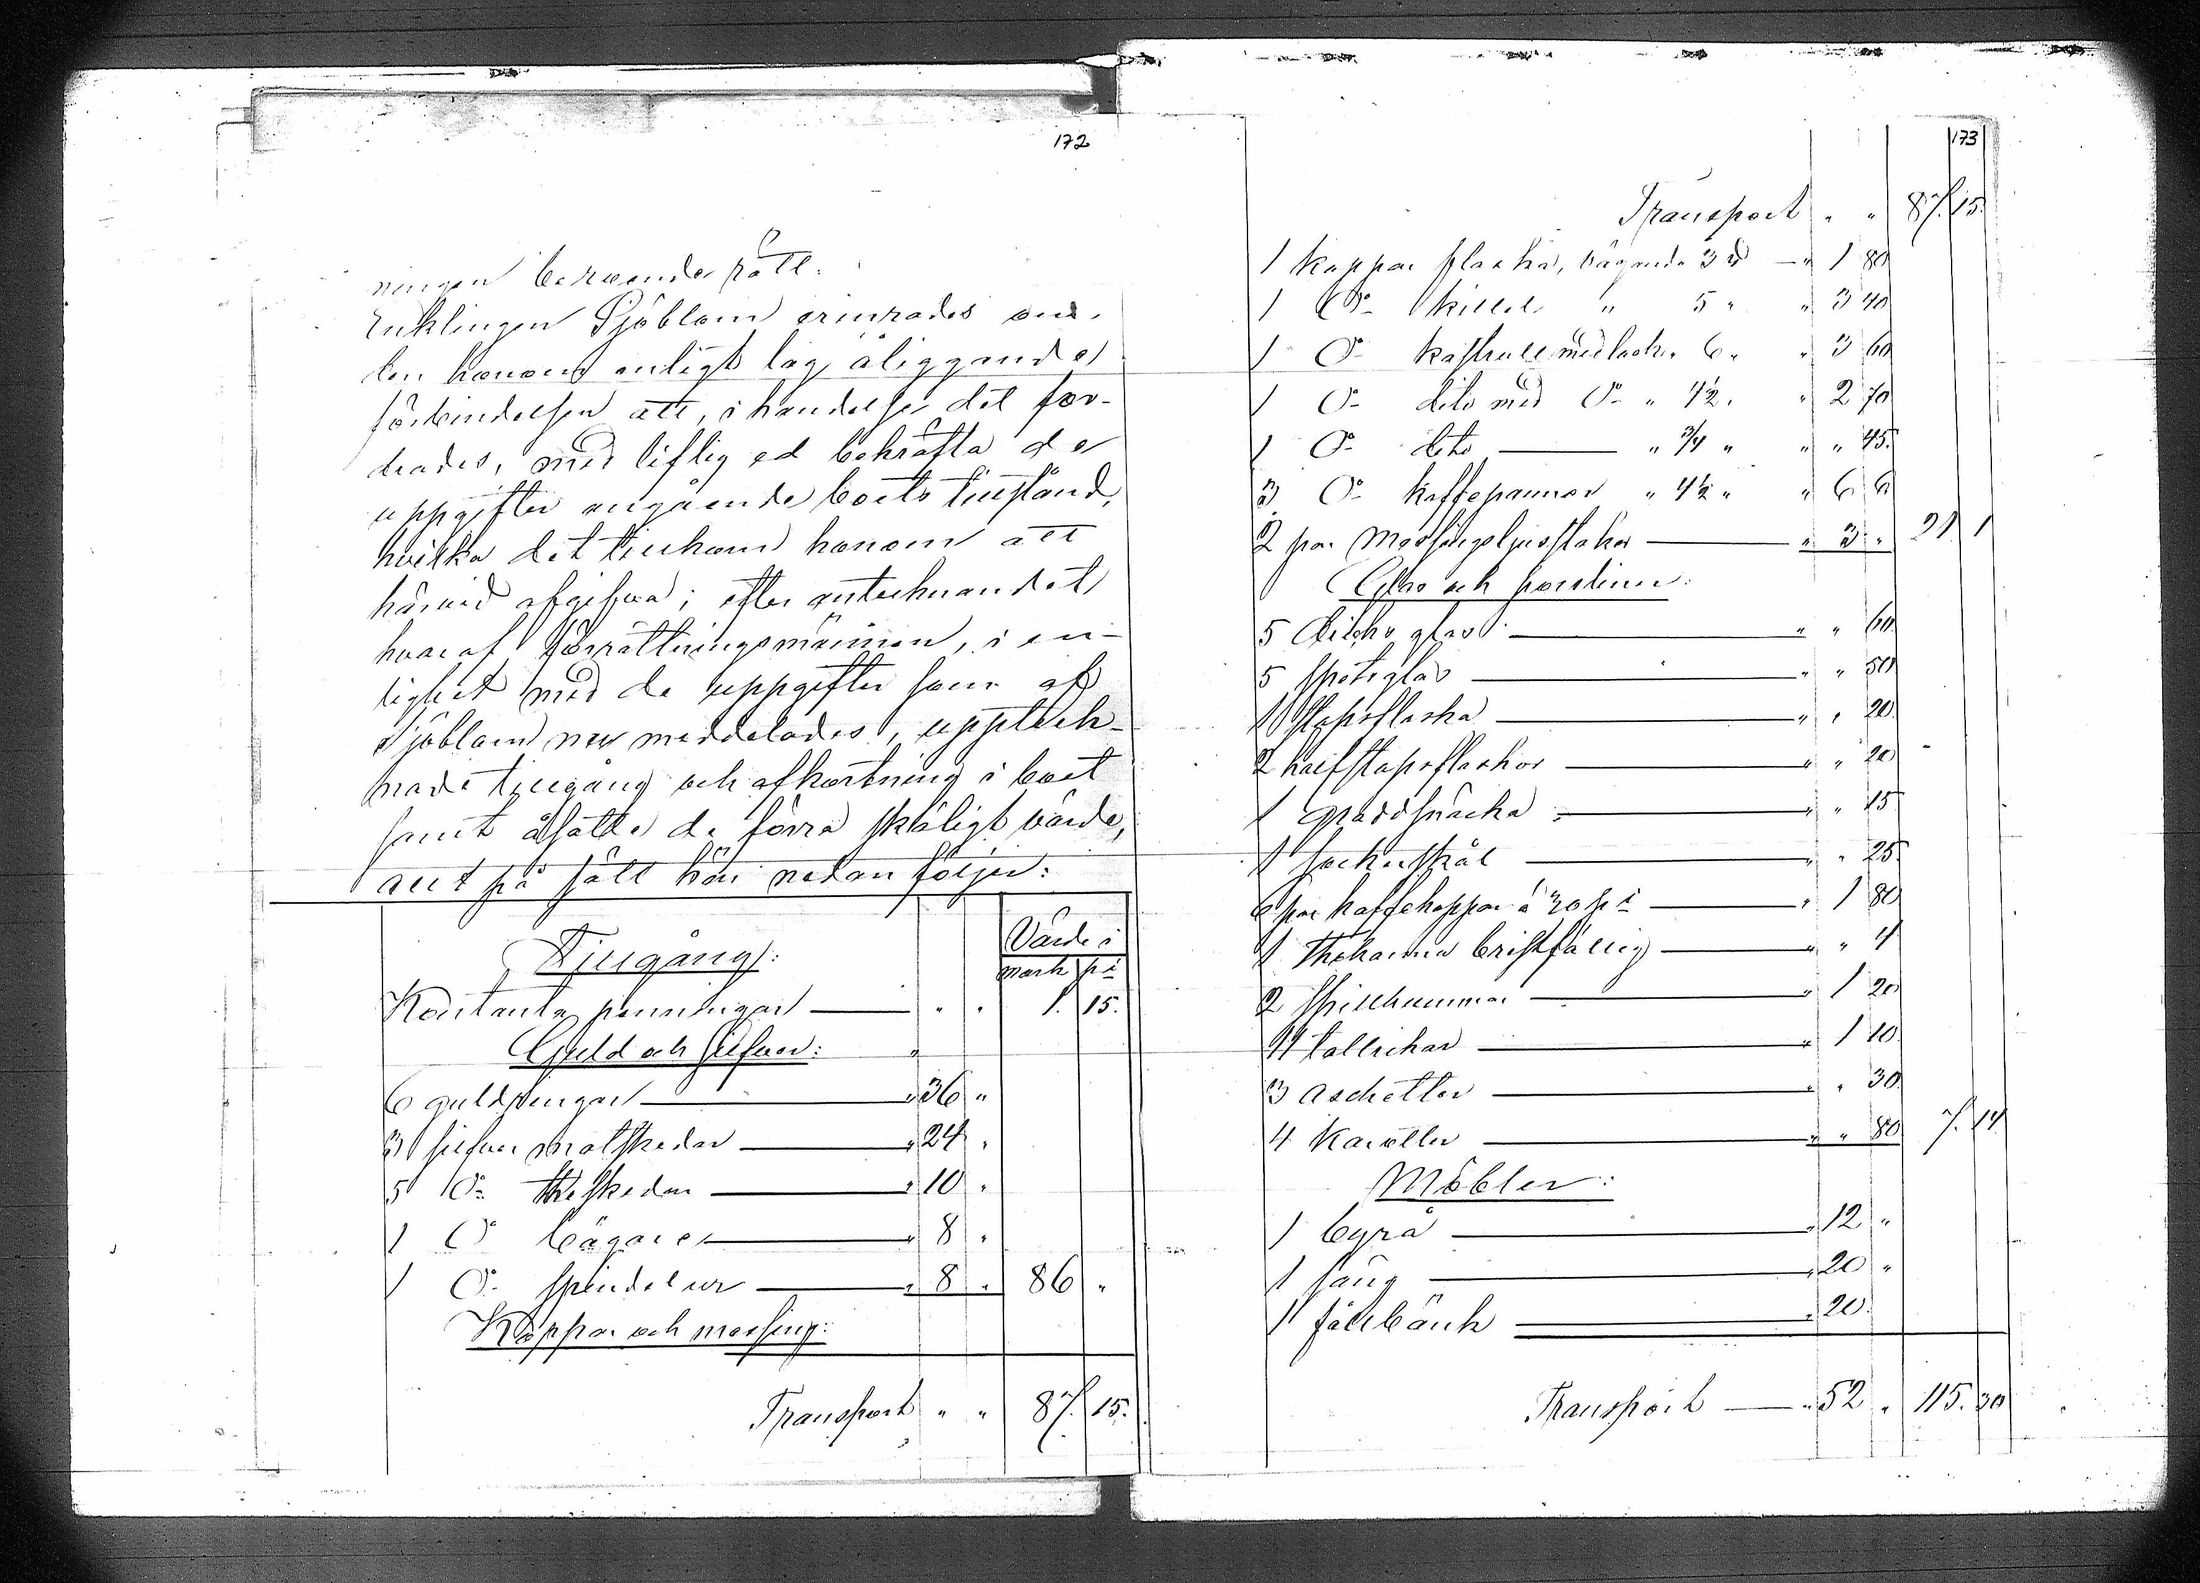 172
ningen beroende rätt.
Enklingen Sjöblom erinrades om
den honom enligt lag åliggande
förbindelsen att, i händelse det for-
drades, med liflig ed bekräfta de
uppgifter angående boets tillstånd,
hvilka det tillkom honom att
härvid afgifva; efter antecknandet
hvaraf förrättningsmännen, i en-
lighet med de uppgifter som af
Sjöblom nu meddelades, uppteck-
nade tillgång och afkortning i boet
samt åsatte de förra skäligt värde,
allt på sätt här nedan följer:
Tillgång:
Värde i
mark pi
Kontanta penningar — " " 1. 15.
Guld och silfver: "
6 guldringar — " 36 "
3 silfver matskedar — " 24 "
5 Do theskedar — " 10 "
1 Do bägare — " 8 "
1 Do spindelur — " 8 " 86 "
Koppar och messing:
Transport " " 87. 15.
173
Transport " " 87. 15.
1 koppar flaska, vägande 3 ℔ — " 1 80
1 Do kittel " 5 " " 3 40
1 Do kastrull med lock " 6 " " 3 60
1 Do dito med Do " 4½ " " 2 70
1 Do dito — " ¾ " " " 45.
3 Do kaffepannor " 4½ " " 6 6
2 par messingsljusstakar — " 3 " 21 1
Glas och porsliner:
5 dricks glas — " " 60
5 spetsglas — " " 50
1 stopsflaska — " " 20
2 halfstopsflaskor — " " 20
1 gräddsnäcka — " " 15
1 sockerskål — " " 25
6 par kaffekoppar á 30 pi — " 1 80
1 thekanna bristfällig — " " 4
2 spillkummar — " 1 20
11 tallrikar — " 1 10
3 aschetter — " " 30
4 karotter — " " 80 7. 14
Möbler:
1 byrå — " 12 "
1 säng — " 20 "
1 fållbänk — " 20
Transport — " 52 " 115. 30